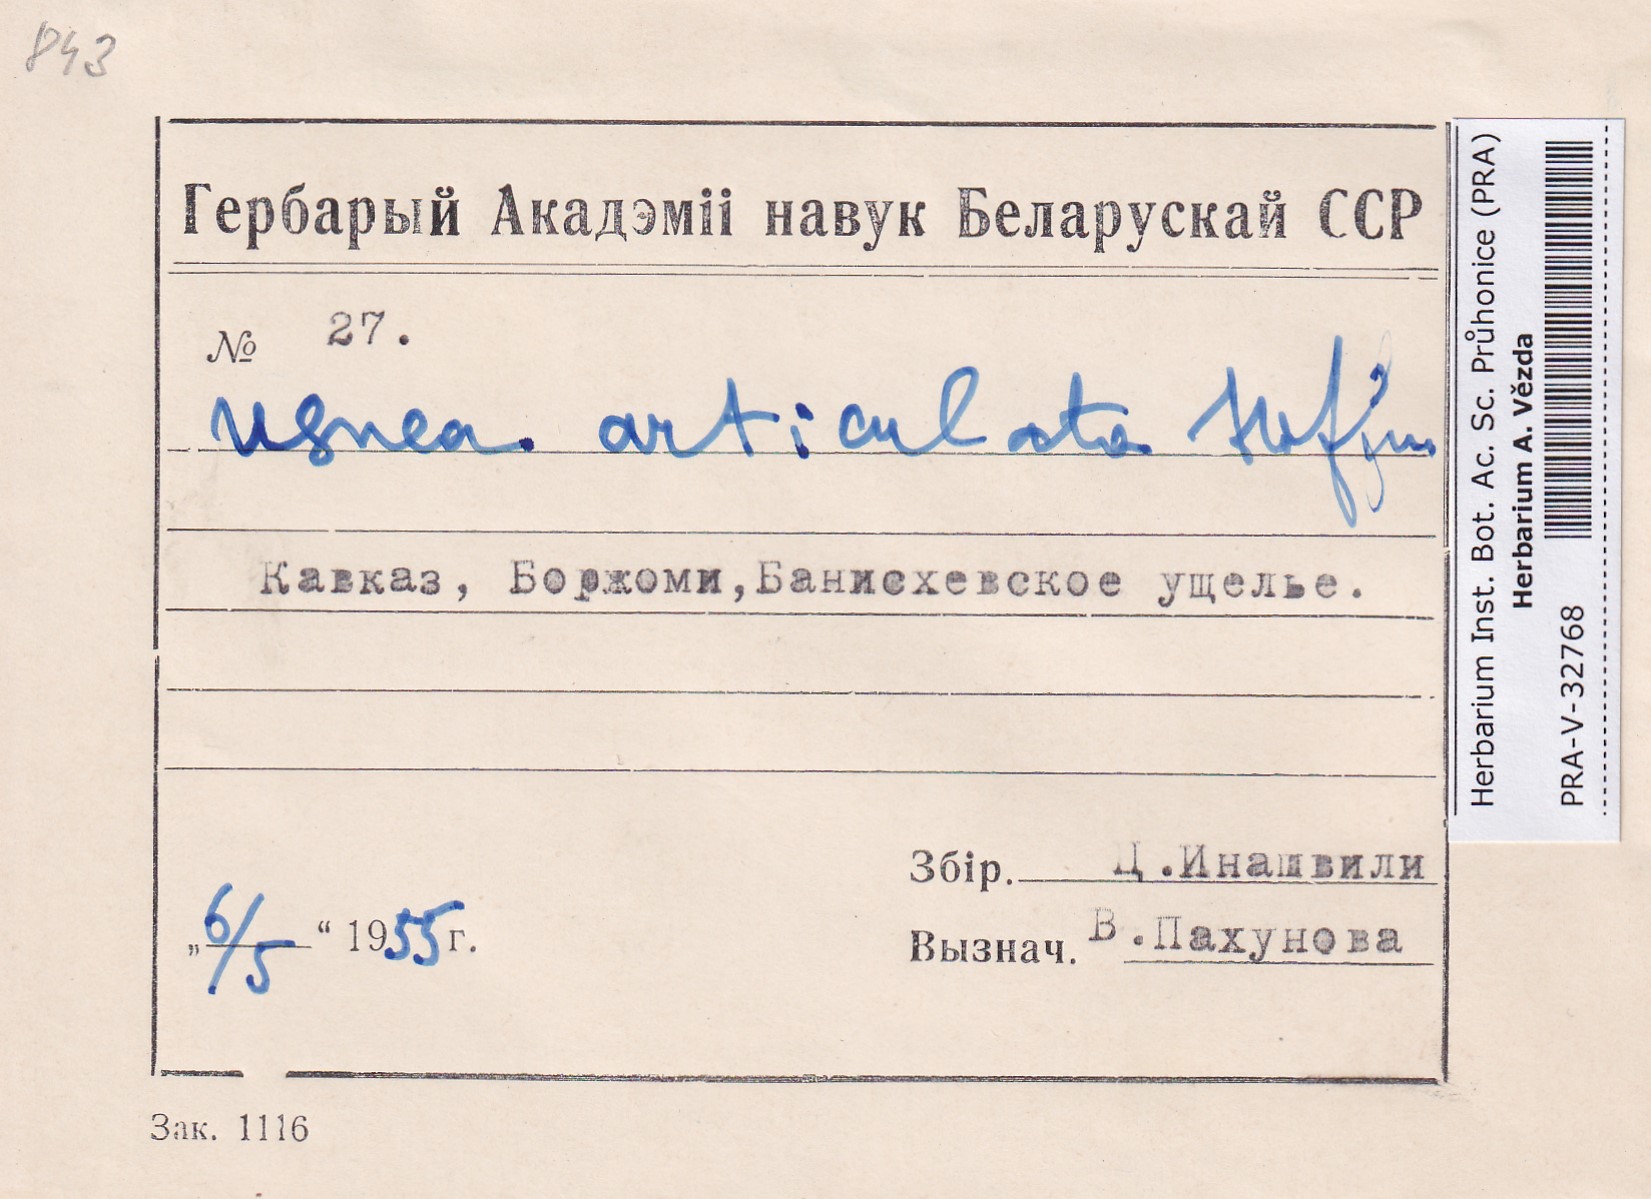 843
Гербарый Акадэміі навук Беларускай ССР
№ 27.
Usnea articulata Hoffm.
Кавказ, Боржоми, Банисхевское ущелье.
Збір. Ц.Инашвили
„6/5“ 1955 г.
Вызнач. В.Пахунова
Зак. 1116
Herbarium Inst. Bot. Ac. Sc. Průhonice (PRA)
Herbarium A. Vězda
PRA-V-32768